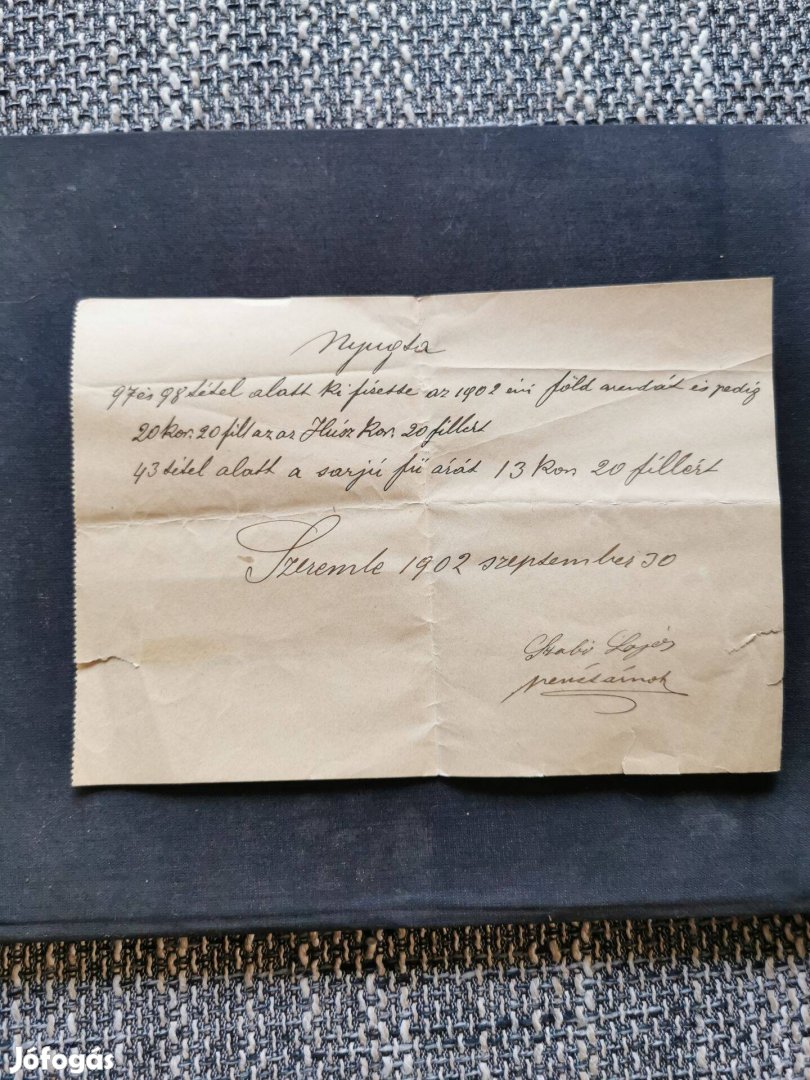 Nyugta
97 és 98 tétel alatt ki fisette az 1902 évi föld arendát és pedig
20 kor. 20 fill az az Húsz kor. 20 fillért
43 tétel alatt a sarjú fü árát 13 kor 20 fillért
Szeremle 1902 szeptember 30
Szabó Lajos
penstárnok
Jófogás